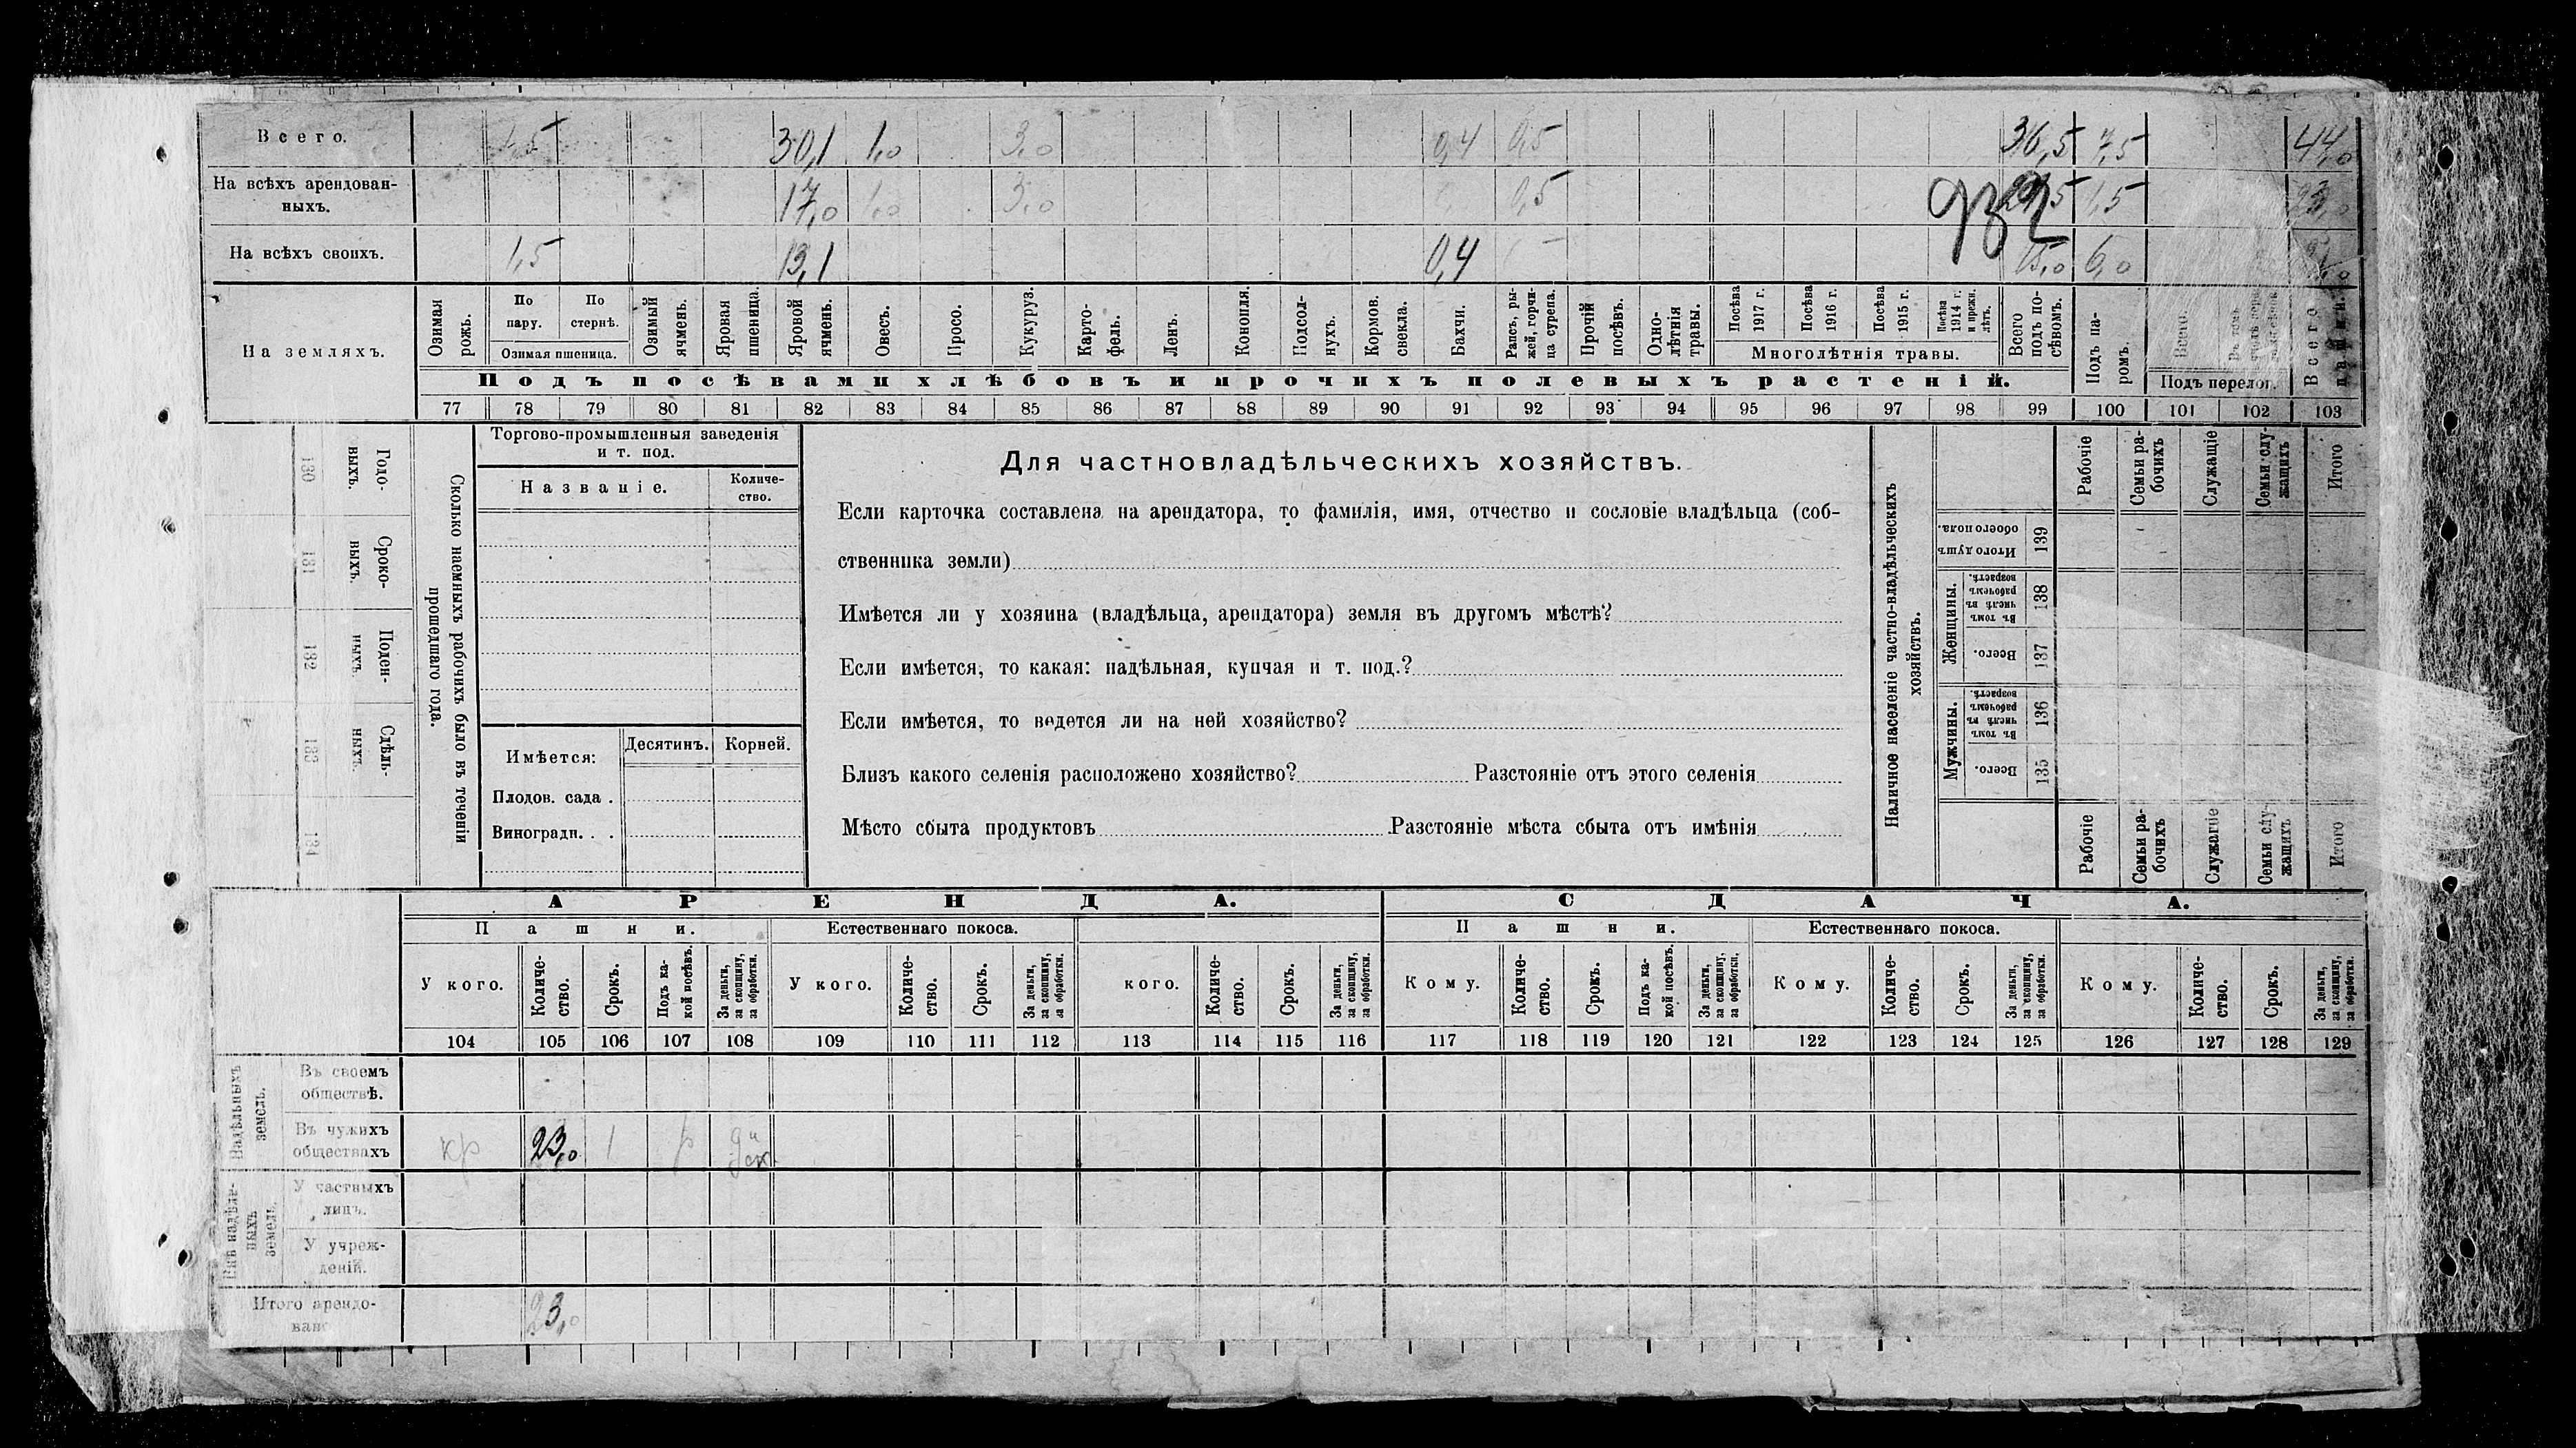 Всего. 1,5 30,1 1,0 3,0 0,4 0,5 36,5 7,5 44,0
На всѣхъ арендован-
ныхъ. 17,0 1,0 3,0 0,5 1,5 23,0
На всѣхъ своихъ. 1,5 13,1 0,4 15,0 6,0
На земляхъ.
Озимая рожь.
По пару.
По стернѣ.
Озимая пшеница.
Озимый ячмень.
Яровая пшеница.
Яровой ячмень.
Овесъ.
Просо.
Кукуруз.
Карто-
фель.
Ленъ.
Конопля.
Подсол-
нухъ.
Кормов.
свекла.
Бахчи.
Рапсъ, ры-
жей, горчи-
ца сурепа.
Прочій
посѣвъ.
Одно-
лѣтнія
травы.
Посѣва
1917 г.
Посѣва
1916 г.
Посѣва
1915 г.
Посѣва
1914 г.
и прежн.
лѣтъ.
Многолѣтнія травы.
Всего
подъ по-
сѣвомъ.
Подъ па-
ромъ.
Всего.
Подъ перелог.
Всего
пашни.
Подъ посѣвами хлѣбовъ и прочихъ полевыхъ растеній.
77 78 79 80 81 82 83 84 85 86 87 88 89 90 91 92 93 94 95 96 97 98 99 100 101 102 103
Сколько наемныхъ рабочихъ было въ теченіи
прошедшаго года.
Годо-
выхъ.
130
Сроко-
выхъ.
131
Поден-
ныхъ.
132
Сдѣль-
ныхъ.
133
134
Торгово-промышленныя заведенія
и т. под.
Названіе.
Количе-
ство.
Имѣется:
Десятинъ. Корней.
Плодов. сада .
Виноградн. . .
Для частновладѣльческихъ хозяйствъ.
Если карточка составлена на арендатора, то фамилія, имя, отчество и сословіе владѣльца (соб-
ственника земли)
Имѣется ли у хозяина (владѣльца, арендатора) земля въ другомъ мѣстѣ?
Если имѣется, то какая: надѣльная, купчая и т. под.?
Если имѣется, то ведется ли на ней хозяйство?
Близъ какого селенія расположено хозяйство? Разстояніе отъ этого селенія
Мѣсто сбыта продуктовъ Разстояніе мѣста сбыта отъ имѣнія
Наличное населеніе частно-владѣльческихъ
хозяйствъ.
Рабочіе
Семьи ра-
бочихъ
Служащіе
Семьи слу-
жащихъ
Итого
Итого душъ
обоего пола.
139
Женщины.
Въ томъ
числѣ въ
рабочемъ
возрастѣ.
138
Всего.
137
Мужчины.
Въ томъ
числѣ въ
рабочемъ
возрастѣ.
136
Всего.
135
Рабочіе
Семьи ра-
бочихъ
Служащіе
Семьи слу-
жащихъ
Итого
АРЕНДА. СДАЧА.
Пашни. Естественнаго покоса. Пашни. Естественнаго покоса.
У кого.
Количе-
ство.
Срокъ.
Подъ ка-
кой посѣвъ.
За деньги,
за скопщину,
за обработки.
У кого.
Количе-
ство.
Срокъ.
За деньги,
за скопщину,
за обработки.
кого.
Количе-
ство.
Срокъ.
За деньги,
за скопщину,
за обработки.
Кому.
Количе-
ство.
Срокъ.
Подъ ка-
кой посѣвъ.
За деньги,
за скопщину,
за обработки.
Кому.
Количе-
ство.
Срокъ.
За деньги,
за скопщину,
за обработки.
Кому.
Количе-
ство.
Срокъ.
За деньги,
за скопщину,
за обработки.
104 105 106 107 108 109 110 111 112 113 114 115 116 117 118 119 120 121 122 123 124 125 126 127 128 129
Надѣльныхъ
земель.
Въ своемъ
обществѣ.
Въ чужихъ
обществахъ кр 23,0 1 р
Внѣ надѣль-
ныхъ
земель.
У частныхъ
лицъ.
У учреж-
деній.
Итого арендо-
вано 23,0